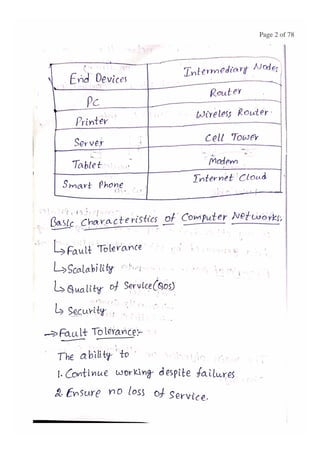 Page 2 of 78
End Devices Intermediary Nodes
PC Router
Printer Wireless Router
Server Cell Tower
Tablet Modem
Smart Phone Internet Cloud
Basic Characteristics of Computer Networks:
↳Fault Tolerance
↳Scalability
↳Quality of Service(QoS)
↳ Security
→Fault Tolerance:-
The ability to
1. Continue working despite failures
2. Ensure no loss of service.